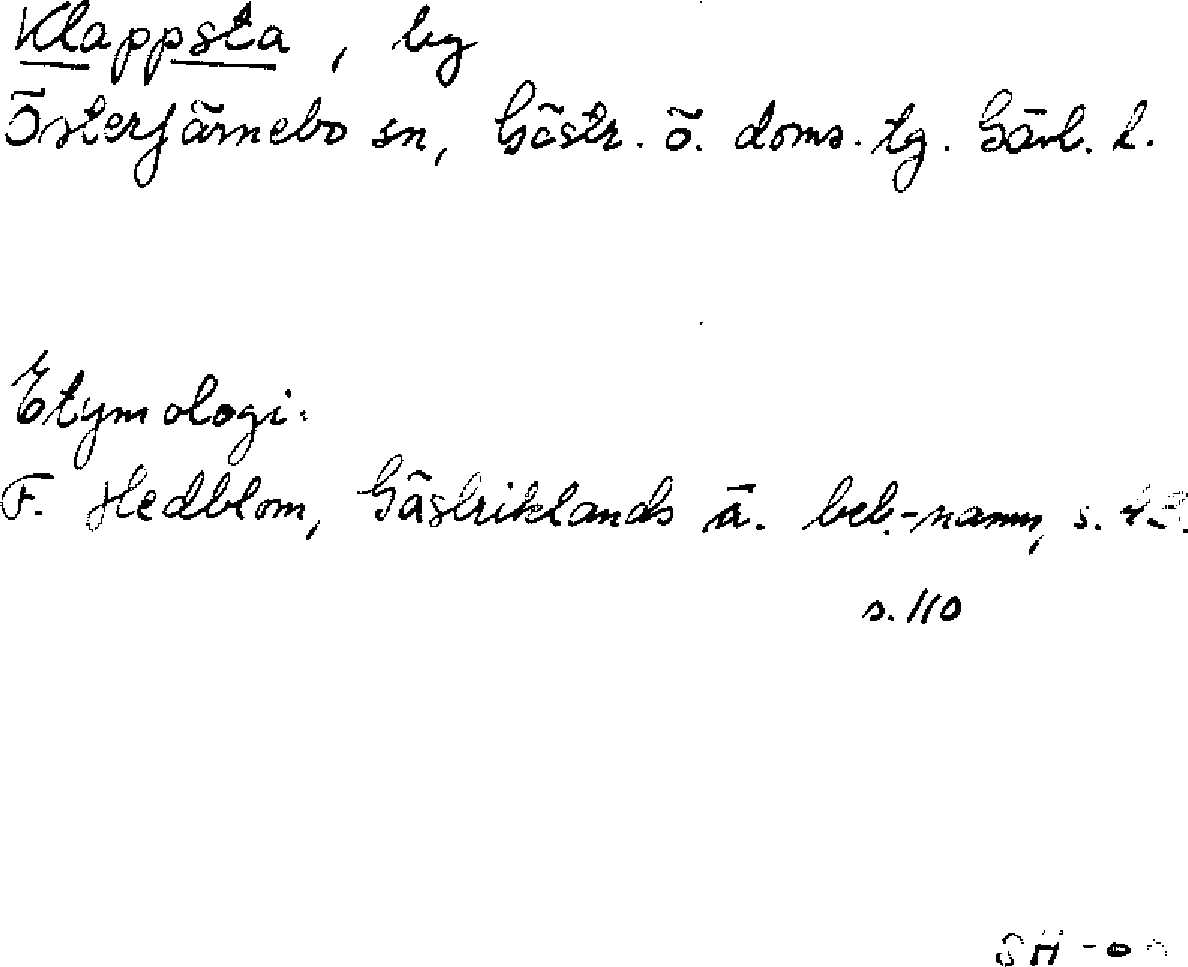 Klappsta, by
Österfärnebo sn, Gästr. ö. doms. tg. Gävl. l.
Etymologi.
F. Hedblom, Gästriklands ä. beb.-namn, s.
s. 110